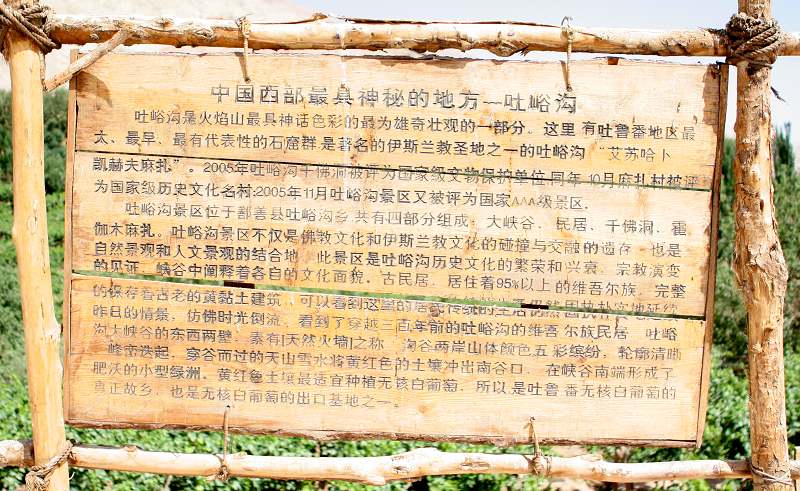 中国西部最具神秘的地方—吐峪沟
吐峪沟是火焰山最具神话色彩的最为雄奇壮观的一部分。这里有吐鲁番地区最
大、最早、最有代表性的石窟群是著名的伊斯兰教圣地之一的吐峪沟 “艾苏哈卜
凯赫夫麻扎”。2005年吐峪沟千佛洞被评为国家级文物保护单位,同年10月麻扎村被评
为国家级历史文化名村;2005年11月吐峪沟景区又被评为国家AAA级景区.
吐峪沟景区位于鄯善县吐峪沟乡,共有四部分组成:大峡谷、民居、千佛洞、霍
伽木麻扎。吐峪沟景区不仅是佛教文化和伊斯兰教文化的碰撞与交融的遗存,也是
自然景观和人文景观的结合地,此景区是吐峪沟历史文化的繁荣和兴衰、宗教演变
的见证,峡谷中阐释着各自的文化面貌,古民居,居住着95%以上的维吾尔族,完整
的保存着古老的黄黏土建筑,可以看到这里的居民传统的生活
昨日的情景,仿佛时光倒流,看到了穿越三百年前的吐峪沟的维吾尔族民居,吐峪
沟大峡谷的东西两壁,素有[天然火墙]之称,沟谷两岸山体颜色五彩缤纷,轮廓清晰
峰峦迭起,穿谷而过的天山雪水将黄红色的土壤冲出南谷口,在峡谷南端形成了
肥沃的小型绿洲。黄红色土壤最适宜种植无核白葡萄,所以是吐鲁番无核白葡萄的
真正故乡,也是无核白葡萄的出口基地之一。